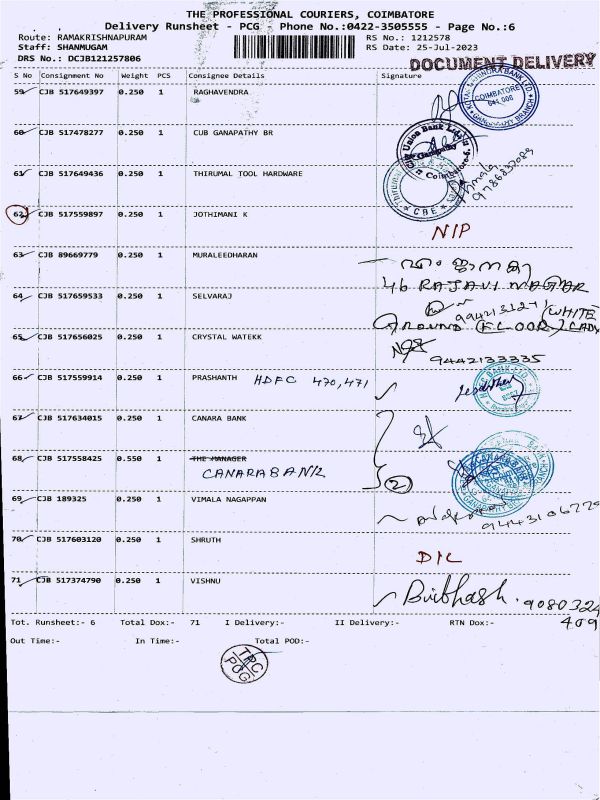 THE PROFESSIONAL COURIERS, COIMBATORE
Delivery Runsheet - PCG - Phone No.:0422-3505555 - Page No.:6
Route: RAMAKRISHNAPURAM RS No.: 1212578
Staff: SHANMUGAM RS Date: 25-Jul-2023
DRS No.: DCJB121257806 DOCUMENT DELIVERY
S No Consignment No Weight PCS Consignee Details Signature
59 CJB 517649397 0.250 1 RAGHAVENDRA
COIMBATORE
60 CJB 517478277 0.250 1 CUB GANAPATHY BR
61 CJB 517649436 0.250 1 THIRUMAL TOOL HARDWARE
CBE
62 CJB 517559897 0.250 1 JOTHIMANI K
NIP
63 CJB 89669779 0.250 1 MURALEEDHARAN
46 RAJAVI NAGAR
64 CJB 517659533 0.250 1 SELVARAJ
(WHITE
GROUND FLOOR)
65 CJB 517656025 0.250 1 CRYSTAL WATEKK
9442133335
66 CJB 517559914 0.250 1 PRASHANTH HDFC 470,471
67 CJB 517634015 0.250 1 CANARA BANK
68 CJB 517558425 0.550 1 THE MANAGER
CANARA BANK
2
69 CJB 189325 0.250 1 VIMALA NAGAPPAN
70 CJB 517603120 0.250 1 SHRUTH
D/L
71 CJB 517374790 0.250 1 VISHNU
9080324
409
Tot. Runsheet:- 6 Total Dox:- 71 I Delivery:- II Delivery:- RTN Dox:-
Out Time:- In Time:- Total POD:-
TRC
PCG